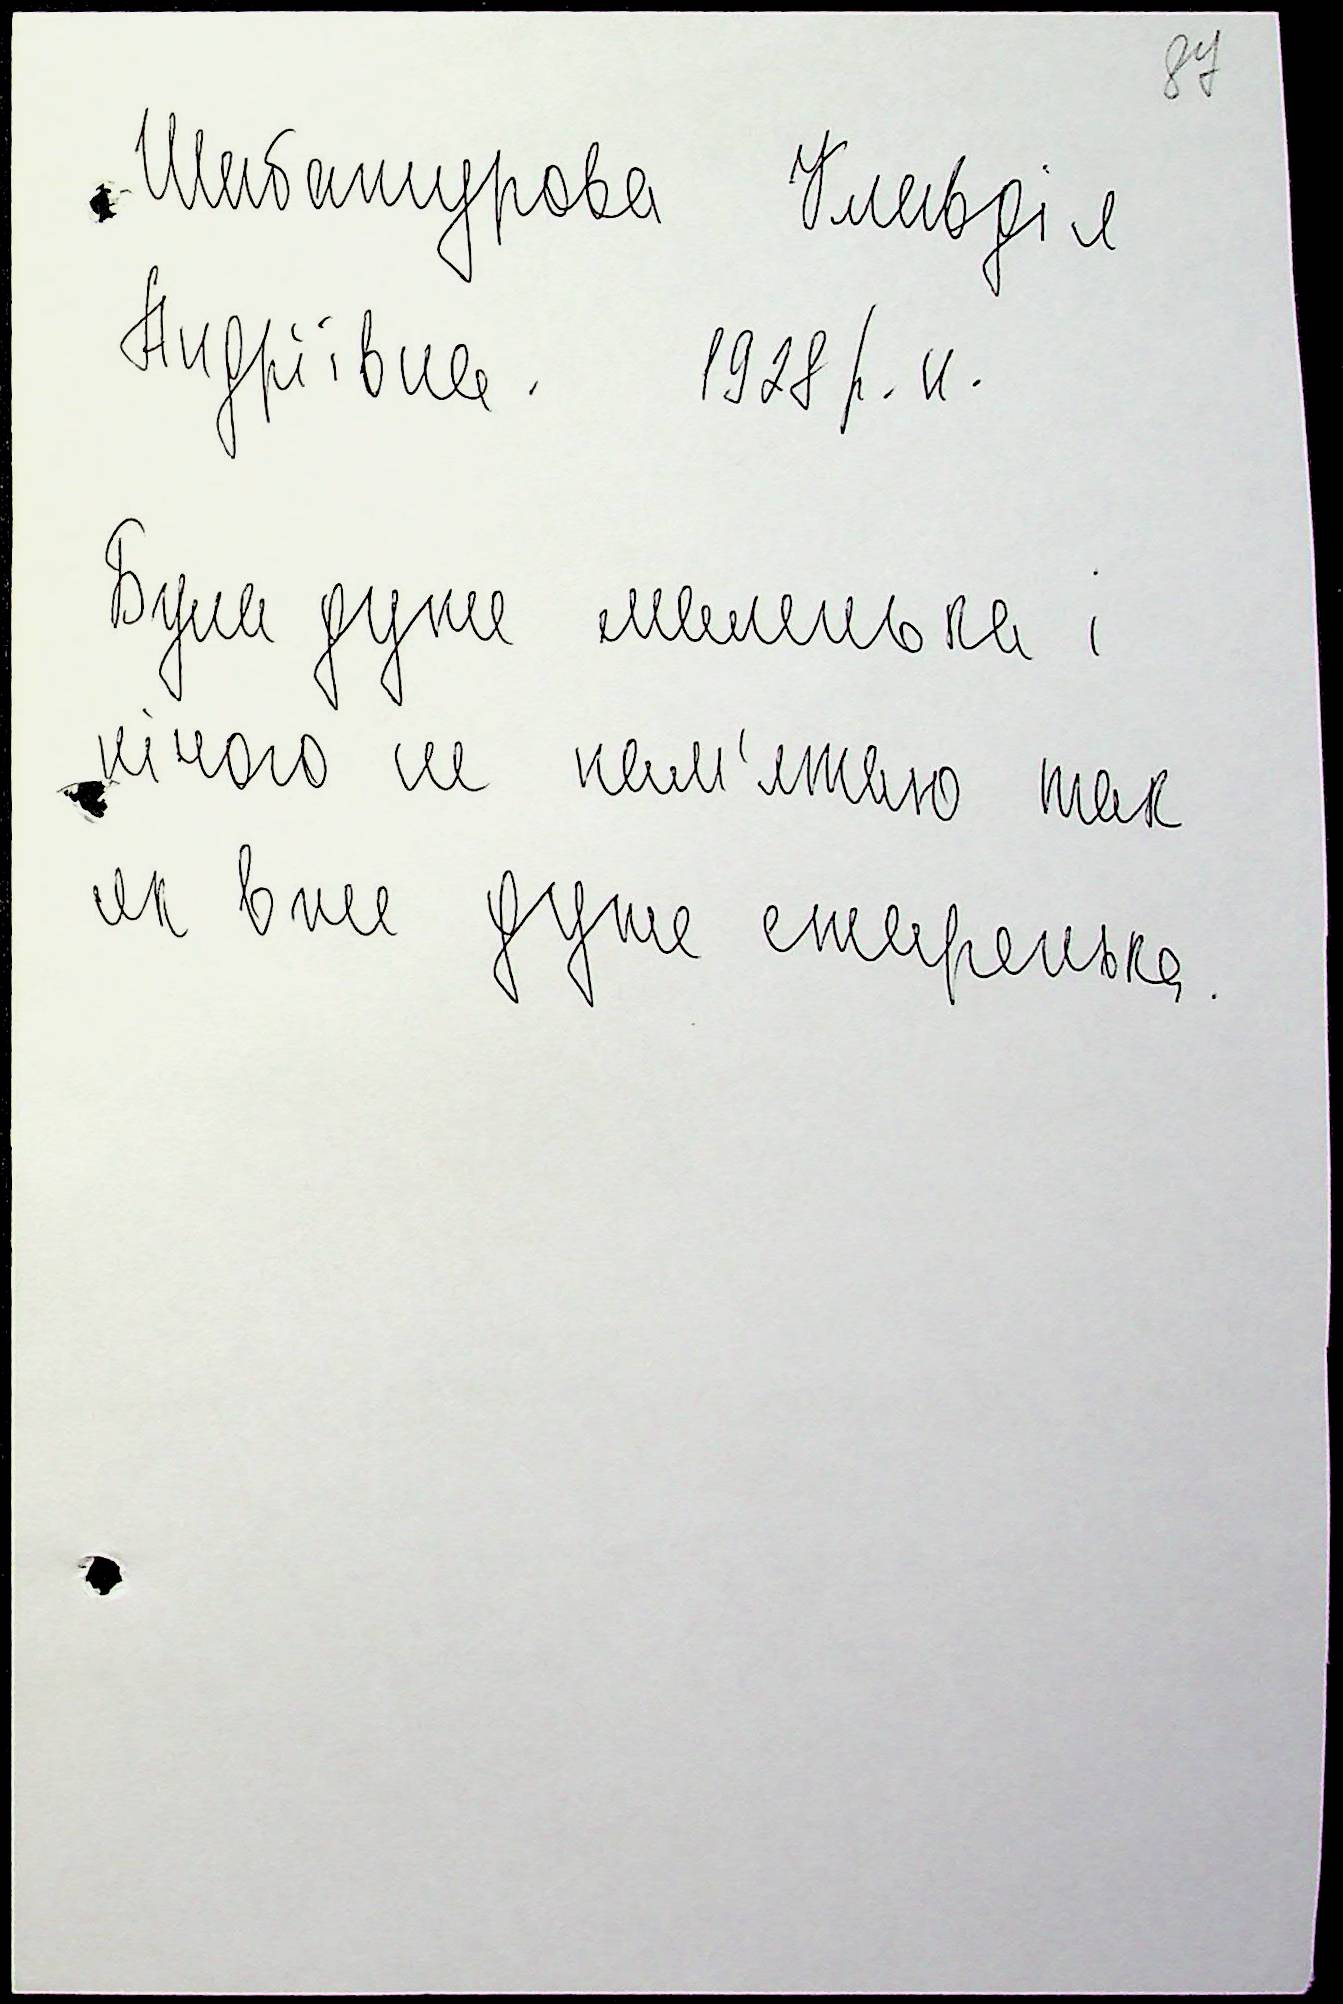 87
Шабатурова Клавдія
Андріївна. 1928 р. н.
Була дуже маленька і
нічого не пам'ятаю так
як вже дуже старенька.